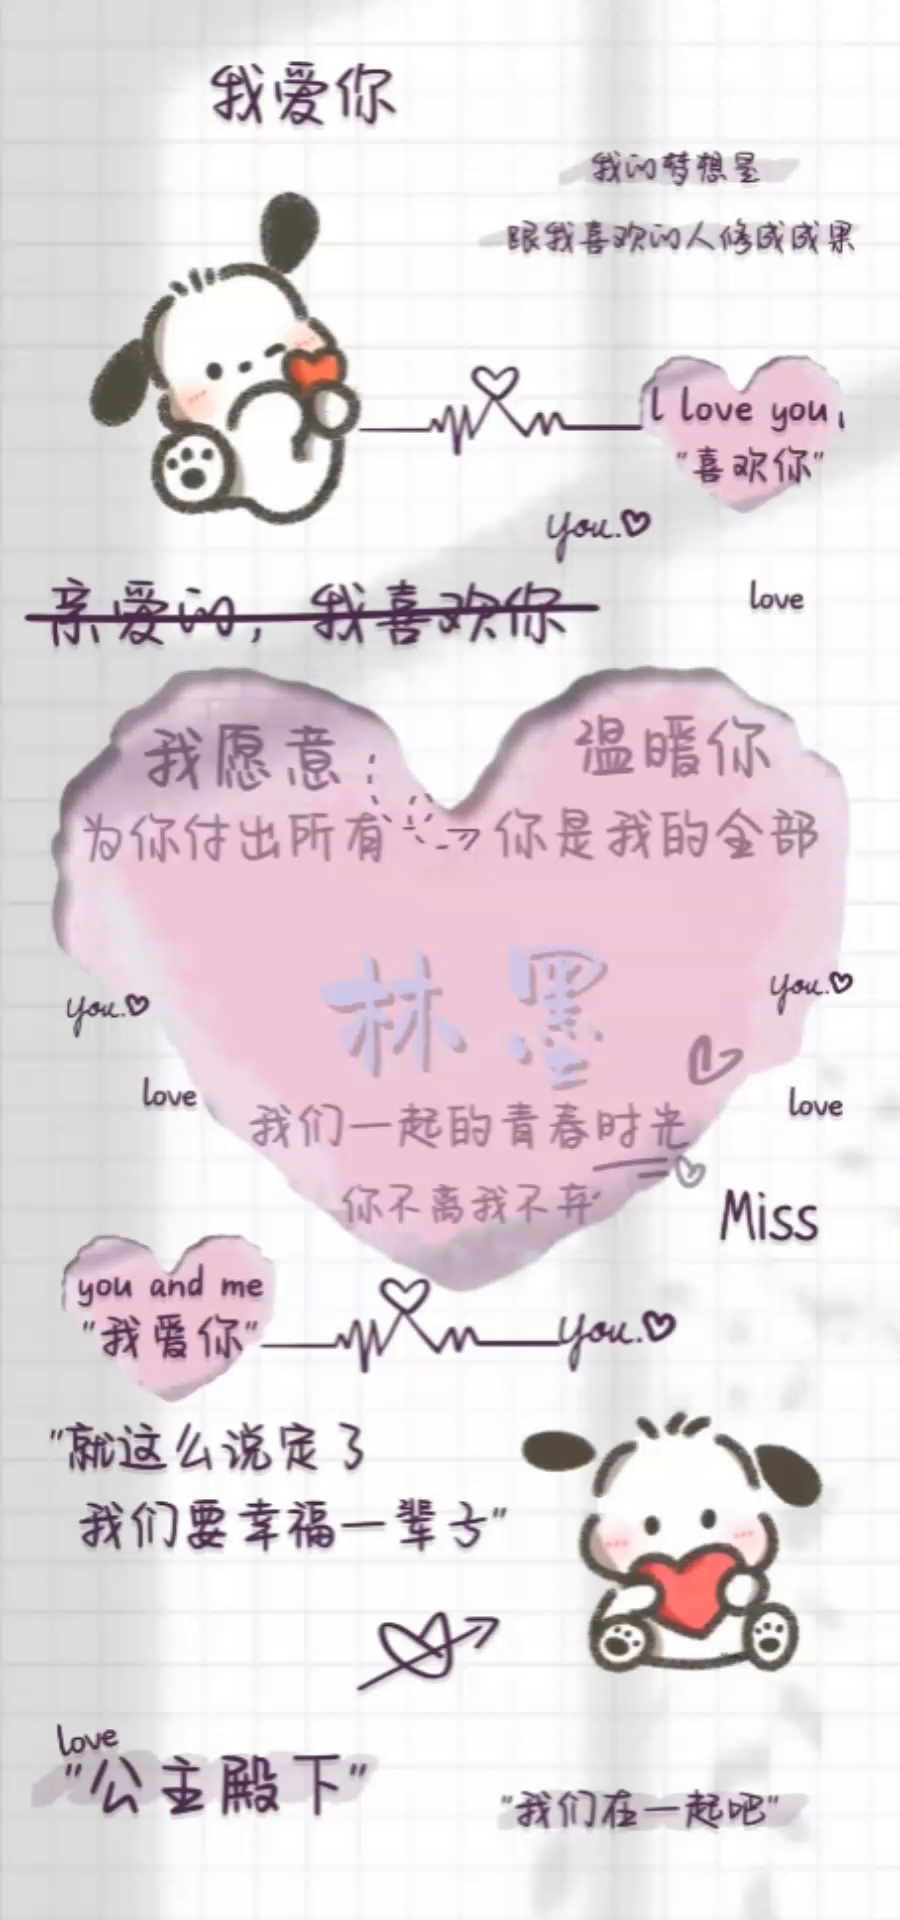 我爱你
我的梦想是
跟我喜欢的人修成成果
l love you,
"喜欢你"
you.
love
亲爱的，我喜欢你
我愿意：
温暖你
为你付出所有
你是我的全部
林墨
you.
you.
love
love
我们一起的青春时光
你不离我不弃
Miss
you and me
"我爱你"
you.
"就这么说定了
我们要幸福一辈子"
love
"公主殿下"
"我们在一起吧"